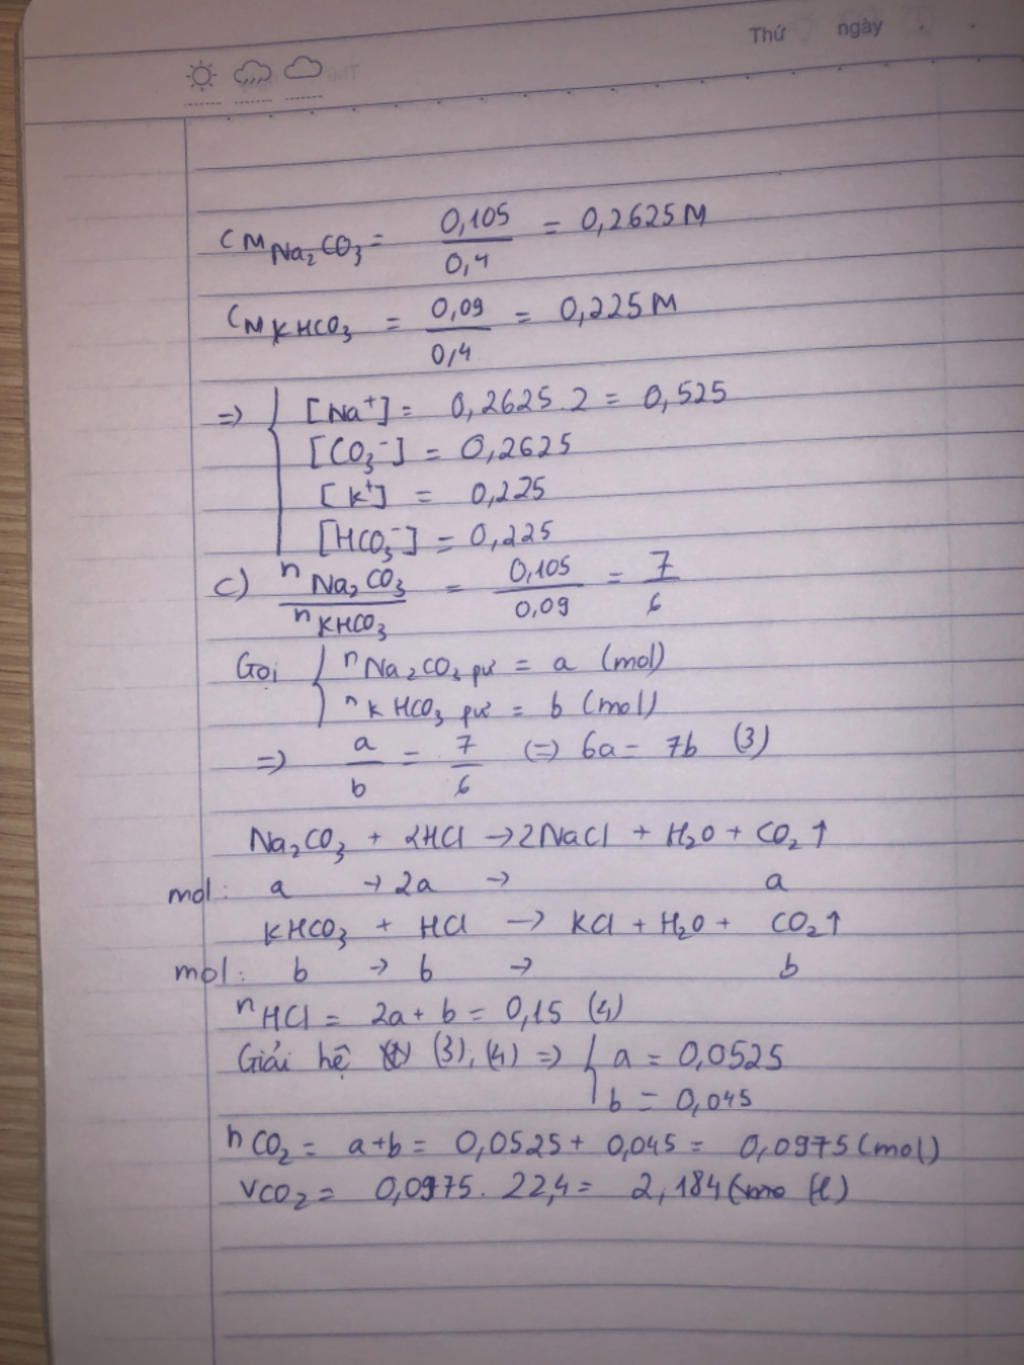 Thứ ngày
CM Na₂CO₃ = 0,105/0,4 = 0,2625M
CM KHCO₃ = 0,09/0,4 = 0,225M
=> { [Na⁺] = 0,2625.2 = 0,525
[CO₃⁻] = 0,2625
[K⁺] = 0,225
[HCO₃⁻] = 0,225
c) nNa₂CO₃/nKHCO₃ = 0,105/0,09 = 7/6
Gọi { nNa₂CO₃ pư = a (mol)
nKHCO₃ pư = b (mol)
=> a/b = 7/6 (=) 6a = 7b (3)
Na₂CO₃ + 2HCl → 2NaCl + H₂O + CO₂↑
mol: a → 2a → a
KHCO₃ + HCl → KCl + H₂O + CO₂↑
mol: b → b → b
nHCl = 2a + b = 0,15 (4)
Giải hệ (3), (4) => { a = 0,0525
b = 0,045
nCO₂ = a+b = 0,0525 + 0,045 = 0,0975 (mol)
VCO₂ = 0,0975. 22,4 = 2,184 (l)